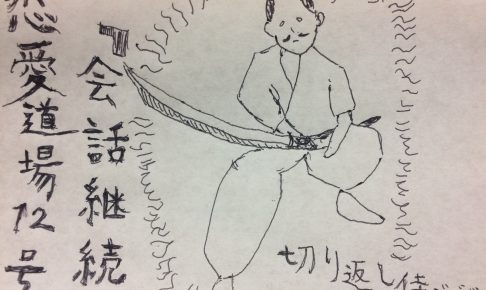 恋愛道場12号
『会話継続
切り返し侍